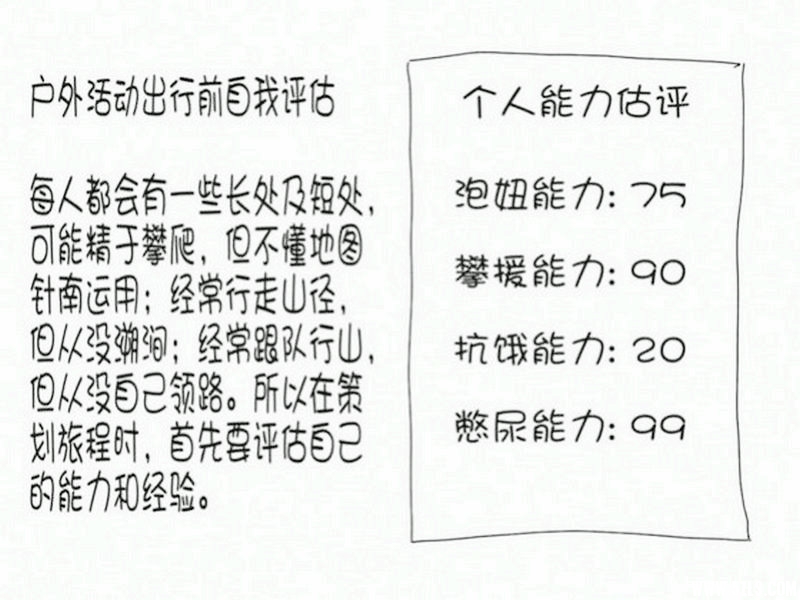 户外活动出行前自我评估
每人都会有一些长处及短处，
可能精于攀爬，但不懂地图
针南运用；经常行走山径，
但从没溯涧；经常跟队行山，
但从没自己领路。所以在策
划旅程时，首先要评估自己
的能力和经验。
个人能力估评
泡妞能力：75
攀援能力：90
抗饿能力：20
憋尿能力：99